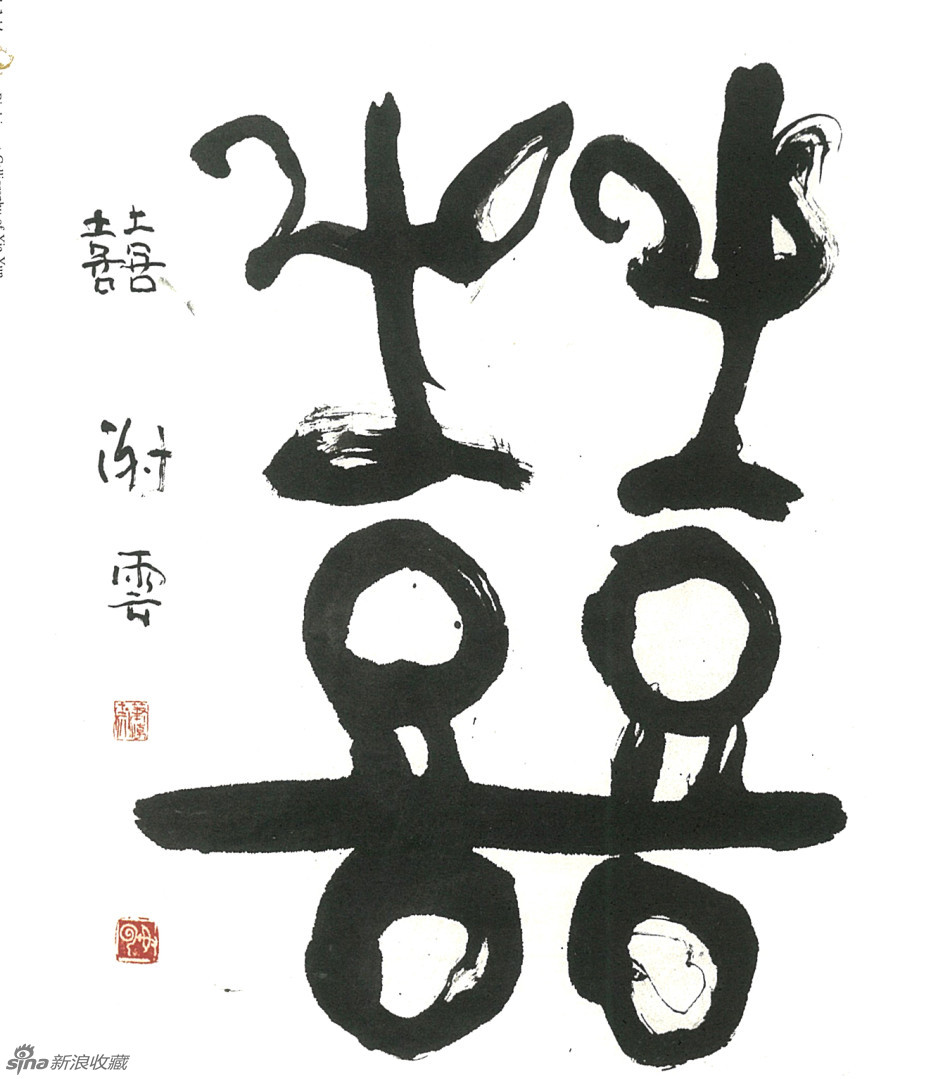 囍
囍
谢雲
sina新浪收藏